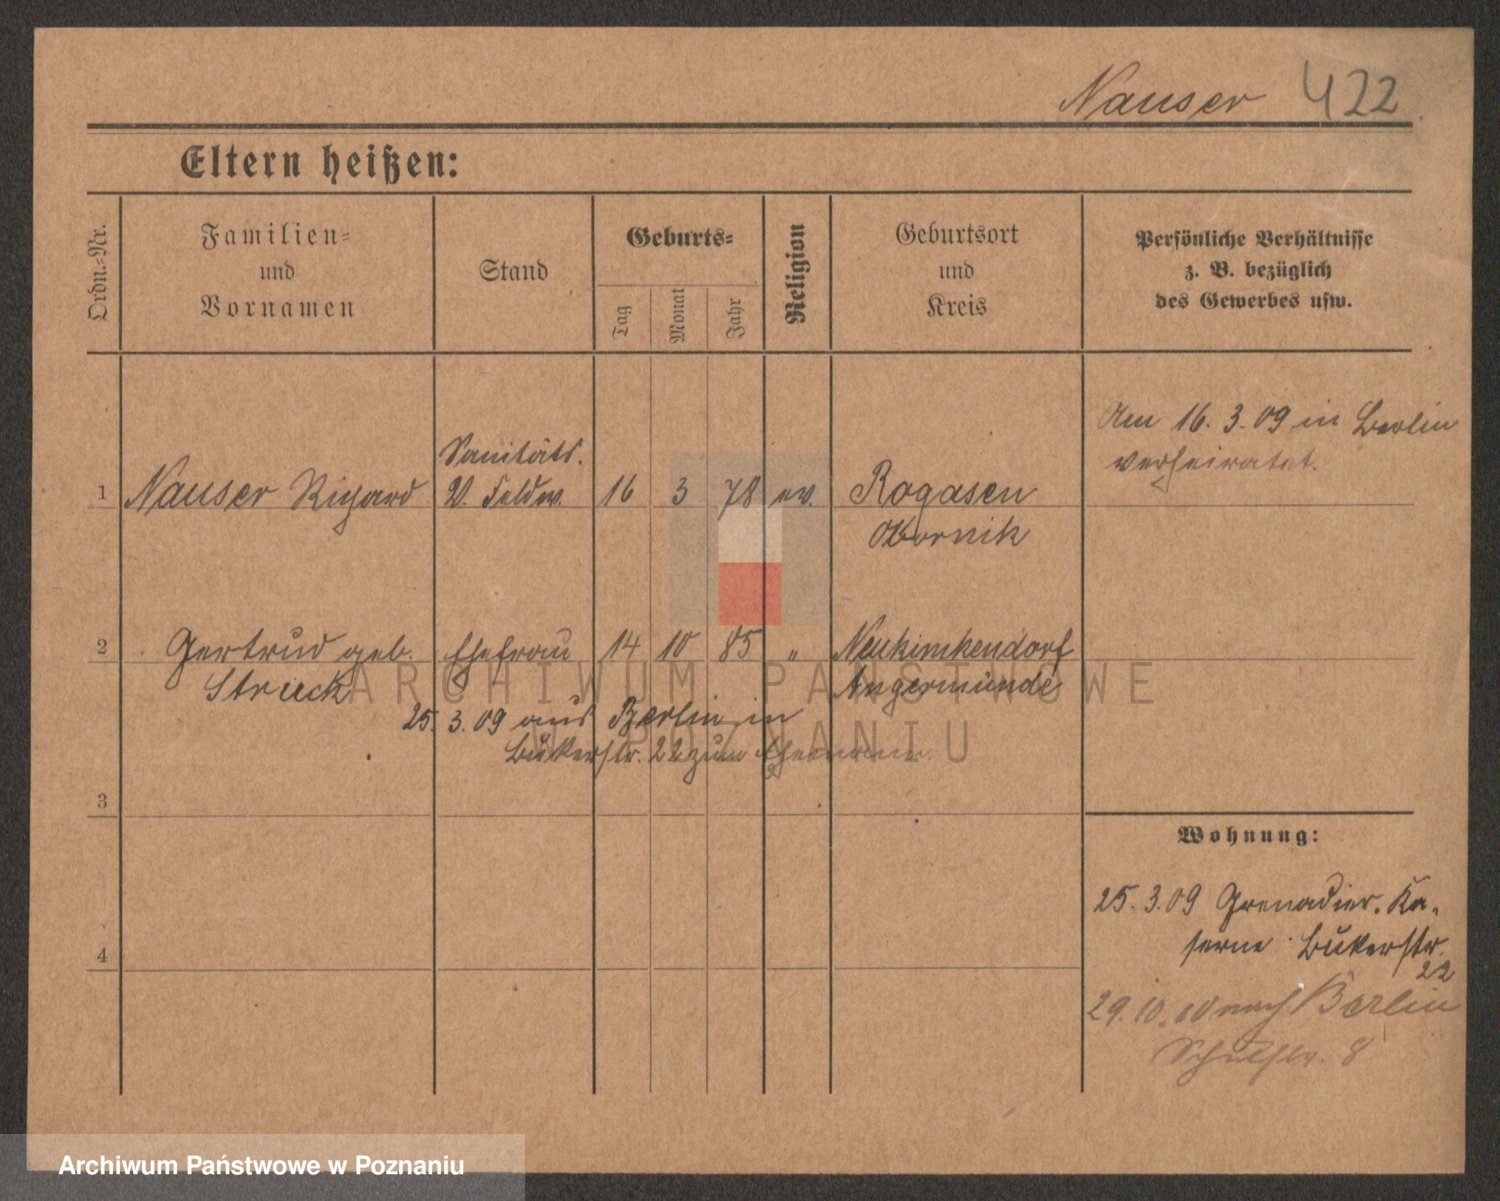 Nauser 422
Eltern heißen:
Ordn.-Nr.
Familien-
und
Vornamen
Stand
Geburts-
Tag
Monat
Jahr
Religion
Geburtsort
und
Kreis
Persönliche Verhältnisse
z. B. bezüglich
des Gewerbes usw.
Am 16. 3. 09 in Berlin
verheiratet.
Sanitäts.
1 Nauser Richard V. Feldw. 16 3 78 ev. Rogasen
Obornik
2 Gertrud geb. Ehefrau 14 10 85 " Neukünkendorf
Struck Angermünde
25. 3. 09 aus Berlin in
Bukerstr. 22 zum Ehemann.
3
4
Wohnung:
25. 3. 09 Grenadier. Ka-
serne Bukerstr.
22
29. 10. 10 nach Berlin
Schulstr. 8
ARCHIWUM PAŃSTWOWE
W POZNANIU
Archiwum Państwowe w Poznaniu